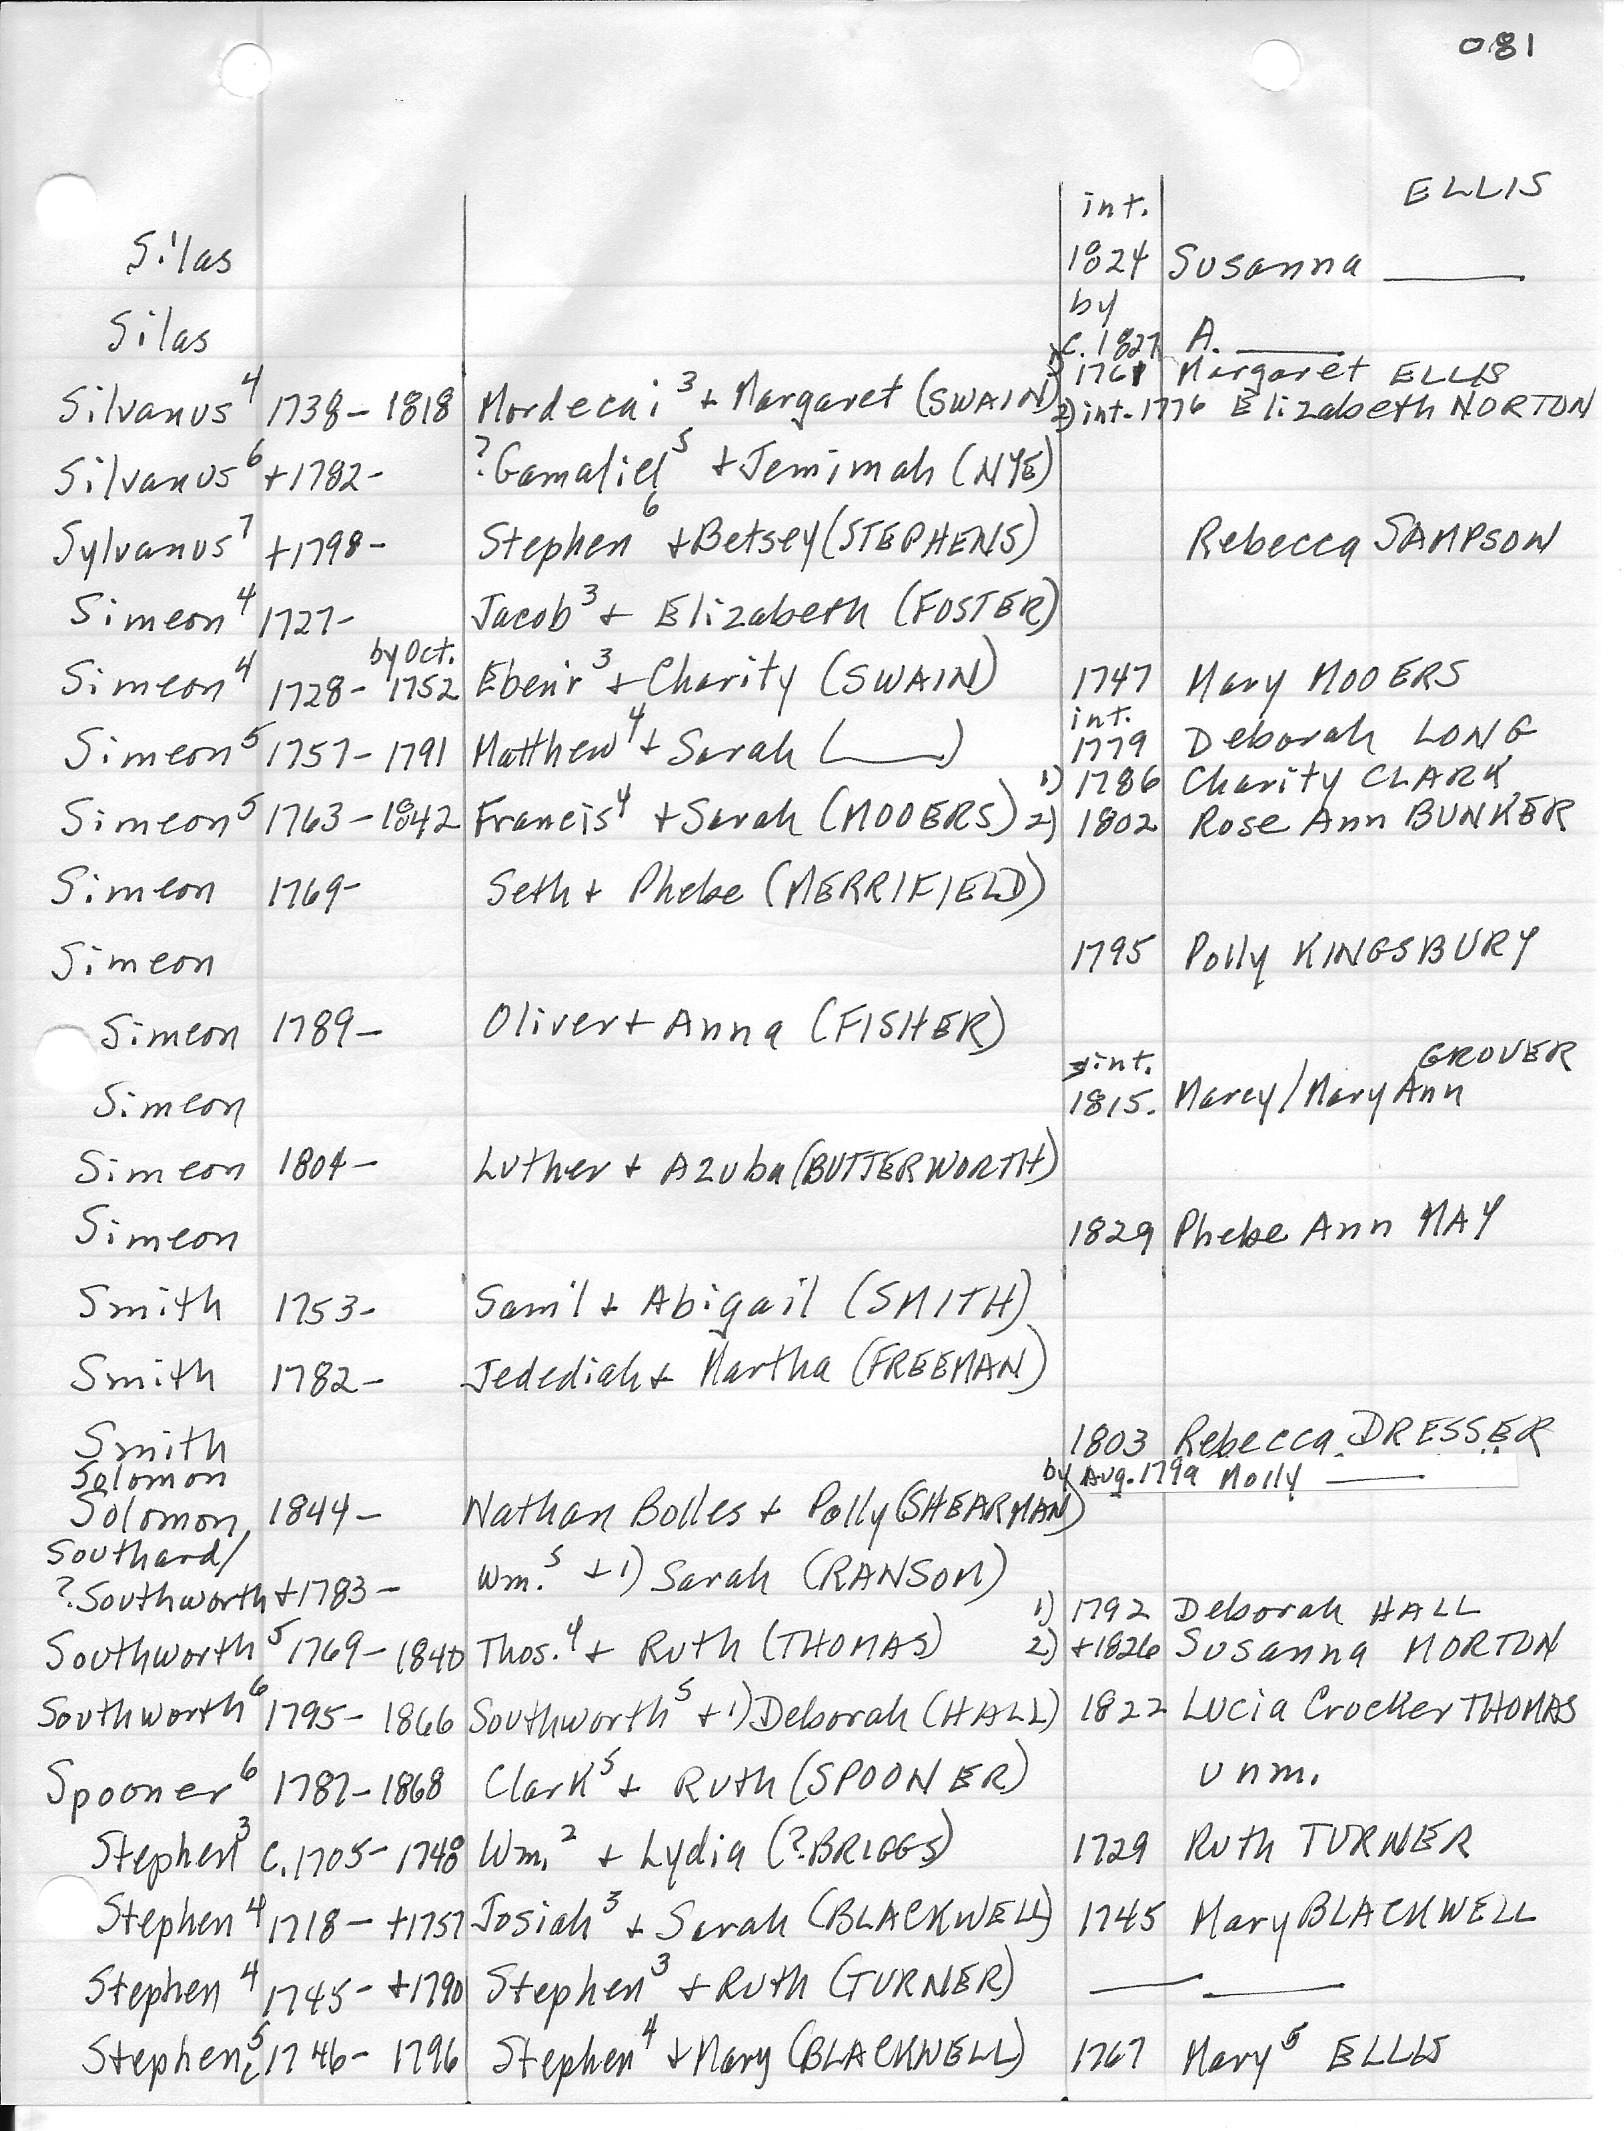 081
ELLIS
Silas int. 1824 Susanna ____
Silas by c. 1827 A. ____
1) 1761 Margaret ELLIS
Silvanus⁴ 1738- 1818 Mordecai³ + Margaret (SWAIN) 2) int. 1776 Elizabeth NORTON
Silvanus⁶ +1782- ?Gamaliel⁵ + Jemimah (NYE)
Sylvanus⁷ +1798- Stephen⁶ + Betsey (STEPHENS) Rebecca SAMPSON
Simeon⁴ 1727- Jacob³ + Elizabeth (FOSTER)
Simeon⁴ 1728- by Oct. 1752 Eben'r³ + Charity (SWAIN) 1747 Mary MOOERS
Simeon⁵ 1757- 1791 Matthew⁴ + Sarah (____) int. 1779 Deborah LONG
1) 1786 Charity CLARK
Simeon⁵ 1763-1842 Francis⁴ + Sarah (MOOERS) 2) 1802 Rose Ann BUNKER
Simeon 1769- Seth + Phebe (MERRIFIELD)
Simeon 1795 Polly KINGSBURY
Simeon 1789- Oliver + Anna (FISHER)
GROVER
Simeon int. 1815. Marcy/Mary Ann
Simeon 1804- Luther + Azuba (BUTTERWORTH)
Simeon 1829 Phebe Ann MAY
Smith 1753- Sam'l + Abigail (SMITH)
Smith 1782- Jedediah + Martha (FREEMAN)
Smith 1803 Rebecca DRESSER
Solomon by Aug. 1799 Molly ____
Solomon 1844- Nathan Bolles + Polly (SHEARMAN)
Southard/
?Southworth +1783- Wm.⁵ + 1) Sarah (RANSOM)
1) 1792 Deborah HALL
Southworth⁵ 1769- 1840 Thos.⁴ + Ruth (THOMAS) 2) +1826 Susanna MORTON
Southworth⁶ 1795- 1866 Southworth⁵ + 1) Deborah (HALL) 1822 Lucia Crocker THOMAS
Spooner⁶ 1787-1868 Clark⁵ + Ruth (SPOONER) unm.
Stephen³ c. 1705- 1748 Wm.² + Lydia (?BRIGGS) 1729 Ruth TURNER
Stephen⁴ 1718- +1757 Josiah³ + Sarah (BLACKWELL) 1745 Mary BLACKWELL
Stephen⁴ 1745- +1790 Stephen³ + Ruth (TURNER) ____ ____
Stephen⁵ c. 1746- 1796 Stephen⁴ + Mary (BLACKWELL) 1767 Mary⁵ ELLIS